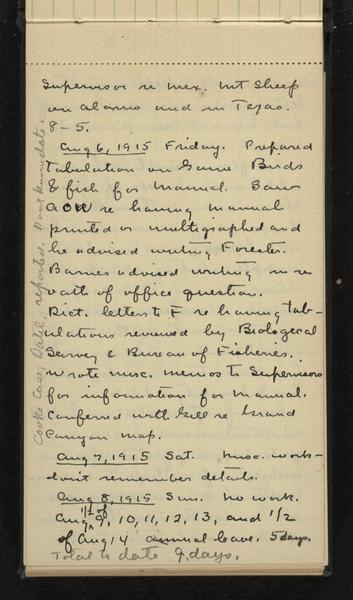 Supervisor re Mex. Mt Sheep
on Alamo and in Texas.
8-5.
Aug 6, 1915 Friday. Prepared
tabulation on Game Birds
& fish for Manual. Saw
AOW re having manual
printed or multigraphed and
he advised writing Forester.
Barnes advised writing in re
oath of office question.
Dict. letters to F re having tab-
ulations reviewed by Biological
Survey & Bureau of Fisheries.
Wrote misc. memos to Supervisors
for information for Manual.
Conferred with Gill re Grand
Canyon map.
Aug 7, 1915 Sat. Misc. work-
don't remember details.
Aug 8, 1915 Sun. No work.
1/2 of
Aug 9, 10, 11, 12, 13, and 1/2
of Aug 14 annual leave. 5 days.
Total to date 9. days.
Cooks Case, reported. Dont know date.